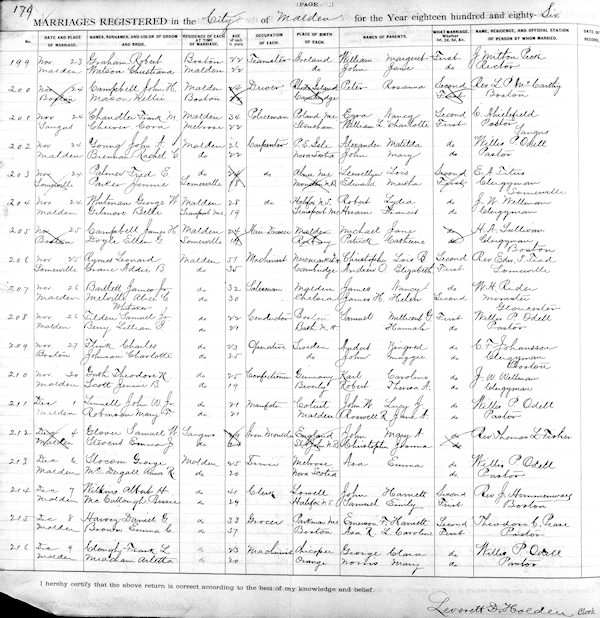 179
PAGE
MARRIAGES REGISTERED in the City of Malden for the Year eighteen hundred and eighty-Six
No. DATE AND PLACE OF MARRIAGE. NAMES, SURNAMES, AND COLOR OF GROOM AND BRIDE. RESIDENCE OF EACH AT TIME OF MARRIAGE. AGE of each in years. OCCUPATION OF EACH. PLACE OF BIRTH OF EACH. NAMES OF PARENTS. WHAT MARRIAGE. Whether 1st, 2d, 3d, &c. NAME, RESIDENCE, AND OFFICIAL STATION OF PERSON BY WHOM MARRIED. DATE OF RECORD.
199 Nov 23 Graham Robert Boston 22 Teamster Ireland William Margaret First J. Milton Peck
Malden Watson Malden 22 do John Jane do Rector
200 Nov 24 Campbell John H. Malden Driver Rhode Island Peter Rosanna Second Rev L. P. McCarthy
Boston Mason Nellie Boston Cambridge First Boston
201 Nov 24 Chandler Frank M. Malden 36 Policeman Poland Me Ezra Nancy Second C.
Saugus Cheever Cora Melrose 22 Stoneham William L. Charlotte First Pastor Saugus
202 Nov 24 Young John A. Malden 26 Carpenter P.E. Isle Alexander Matilda do Willis P. Odell
Malden Brennan Rachel C. do 22 Nova Scotia John Mary do Pastor
203 Nov 24 Palmer Fred E. do do Alna Me Llewellyn Lois Second E. A. Titus
Somerville Parker Jennie Somerville Edward Martha First Clergyman Somerville
204 Nov 24 Whitman George W. Malden 28 do Halifax N.S. Robert Lydia do J. W. Wellman
Malden Gilmore Belle Searsport Me 19 Searsport Me Hiram Frances do Clergyman
205 Nov 25 Campbell James H. Malden 24 Malden Michael Jane do H. A. Sullivan
Boston Doyle Ellen G. Somerville Roxbury Patrick Catherine Clergyman Boston
206 Nov 25 Rymes Leonard Malden 51 Machinist Christopher Lois B. Second Rev Edw. J.
Somerville Crane Addie B. do 35 Cambridge Andrew O. Elizabeth First Somerville
207 Nov 26 Bartlett James Jr. do 32 Salesman Malden James Nancy do W. H. Rider
Malden Melville Alice C. do 30 Chelsea James H. Helen Second Minister
Whitaker Gloucester
208 Nov 26 Tilden Samuel Jr. do 22 Conductor Boston Samuel Millicent G. First Willis P. Odell
Malden Berry Lillian P. do 21 Bath N.H. Hannah do Pastor
209 Nov 27 Flink Charles do 23 Operative Sweden Anders do C. F. Johansson
Boston Johnson Charlotte do 25 do John Maggie do Clergyman Boston
210 Nov 30 Theodore K. do 25 Confectioner Germany Karl Caroline do J. W. Wellman
Malden Scott Jennie B. do 19 Beverly Robert Theresa A. do Clergyman
211 Dec 1 Linnell John W. Jr. do 21 Cotuit John W. Lucy J. do Willis P. Odell
Malden Robinson Mary T. do 21 Malden Roswell R. Jane A. do Pastor
212 Dec 4 Glover Samuel W. Saugus Iron Moulder England John Mary A. do Rev Thomas L. Fisher
Malden Stevens Emma J. do Christopher Joanna
213 Dec 6 Slocomb George Malden 45 Farmer Melrose Asa Emma do Willis P. Odell
Malden McDougall Anna R. do 20 Nova Scotia do Pastor
214 Dec 7 Wilkins Albert H. do 41 Clerk Lowell John Harriett Second Rev J. Himmenway
Malden McCullough Bessie do 24 Halifax N.S. Samuel Emily First Boston
215 Dec 8 Harvey Daniel G. do 33 Grocer Parkman Me Emerson F. Harriett Second Theodore C. Pease
Malden Brown Emma E. do 37 Boston Asa R. L. Caroline First Pastor
216 Dec 9 Clough Frank L. do 23 Machinist Chicopee George Clara do Willis P. Odell
Malden Meacham Arletha do 20 Orange Norris Mary do Pastor
I hereby certify that the above return is correct according to the best of my knowledge and belief.
Leverett D. Holden Clerk.